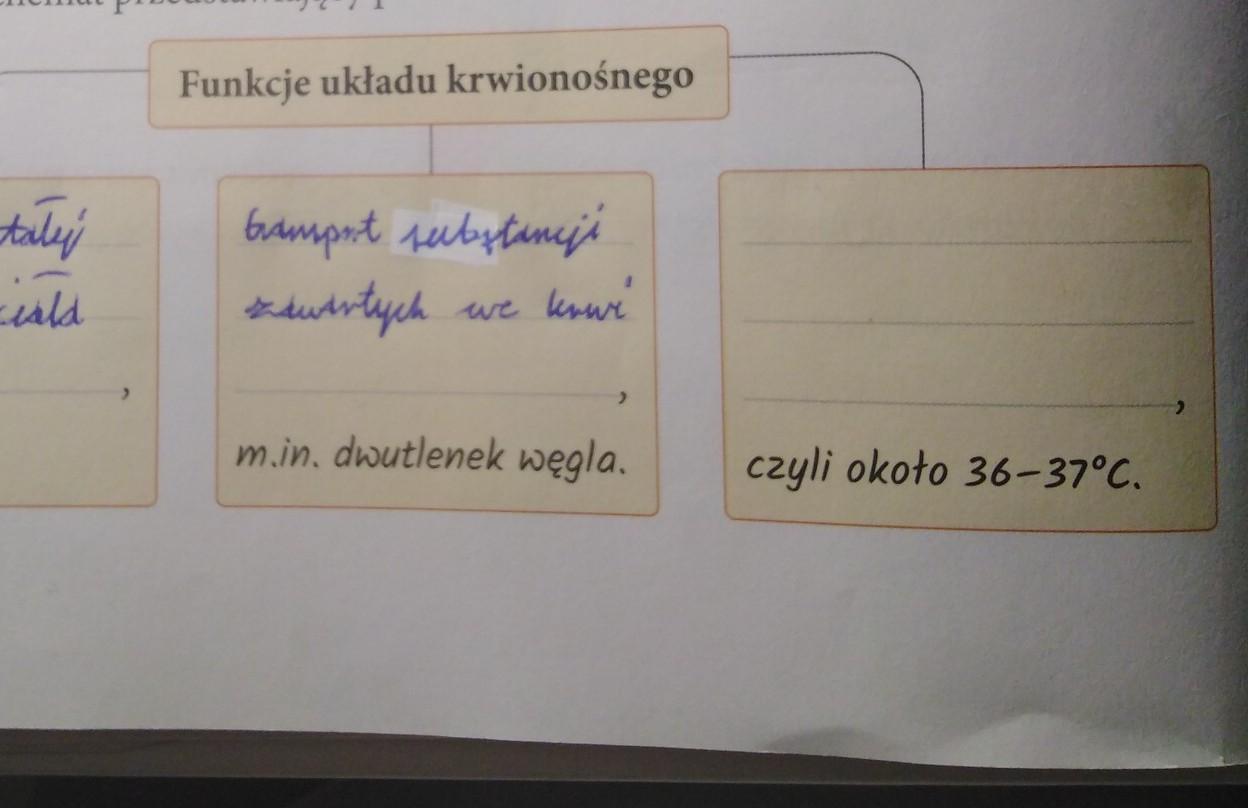 Funkcje układu krwionośnego
transport substancji
zawartych we krwi
,
m.in. dwutlenek węgla.
,
czyli około 36–37°C.